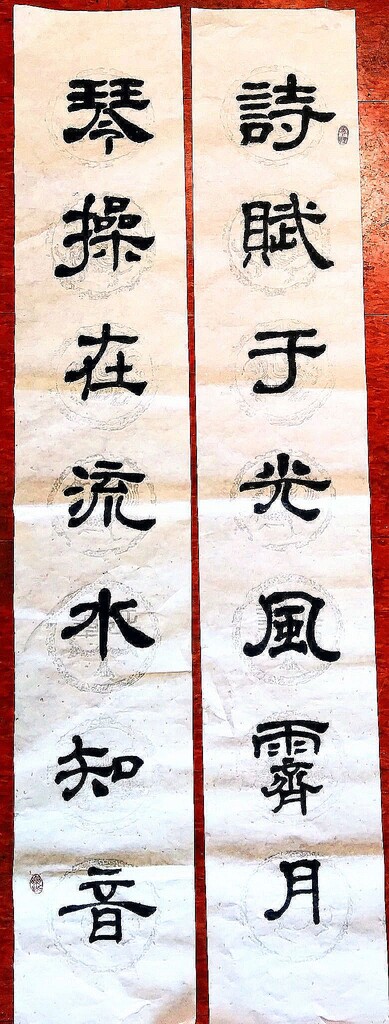 詩賦于光風霽月
琴操在流水知音